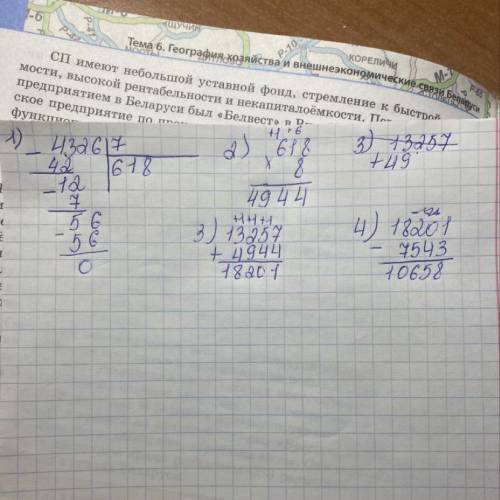 Тема 6. География хозяйства и внешнеэкономические связи Беларуси
КОРЕЛИЧИ
СП имеют небольшой уставной фонд, стремление к быстрой
мости, высокой рентабельности и некапиталоёмкости. Пер
предприятием в Беларуси был «Белвест» в
ское предприятие по
1) - 4326 | 7
42 | 618
- 12
7
56
- 56
0
+1 +6
2) 618
x 8
4944
3) 13257
+ 49
+1 +1 +1
3) 13257
+ 4944
18201
4) 18201
- 7543
10658